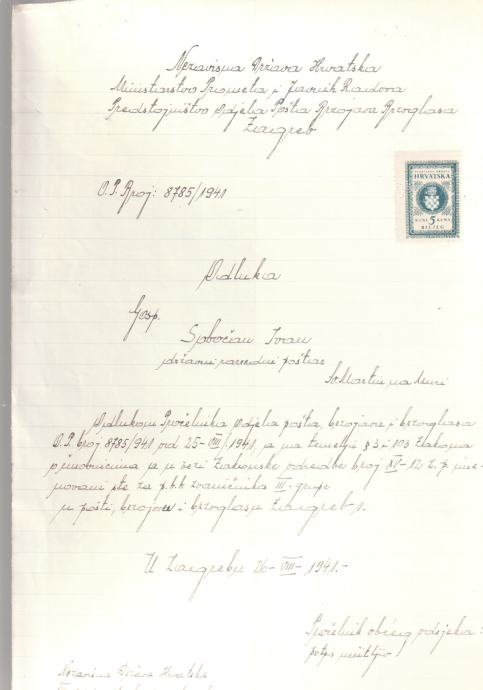 Nezavisna Država Hrvatska
Ministarstvo Prometa i Javnih Radova
Predstojništvo Odjela Pošta Brzojava Brzoglasa
Zagreb
HRVATSKA
5
KUNA KUNA
BILJEG
O.P. Broj: 8785/1941
Odluka
Gosp.
Sobočan Ivan
državni razredni poštar
Sv. Martin na Muri
Odlukom Pročelnika Odjela pošta, brzojava i brzoglasa
O.P. broj 8785/941 od 25-VIII-1941, a na temelju § 3 i 103 Zakona
o činovnicima a u vezi Zakonske odredbe broj XV-12 Z. p. ime-
novani ste za p.b.b. zvaničnika III-grupe
u pošti, brzojavu i brzoglasu Zagreb 1.
U Zagrebu 26-VIII-1941.-
Pročelnik obćeg odsjeka:
potpis nečitljiv
Nezavisna Država Hrvatska